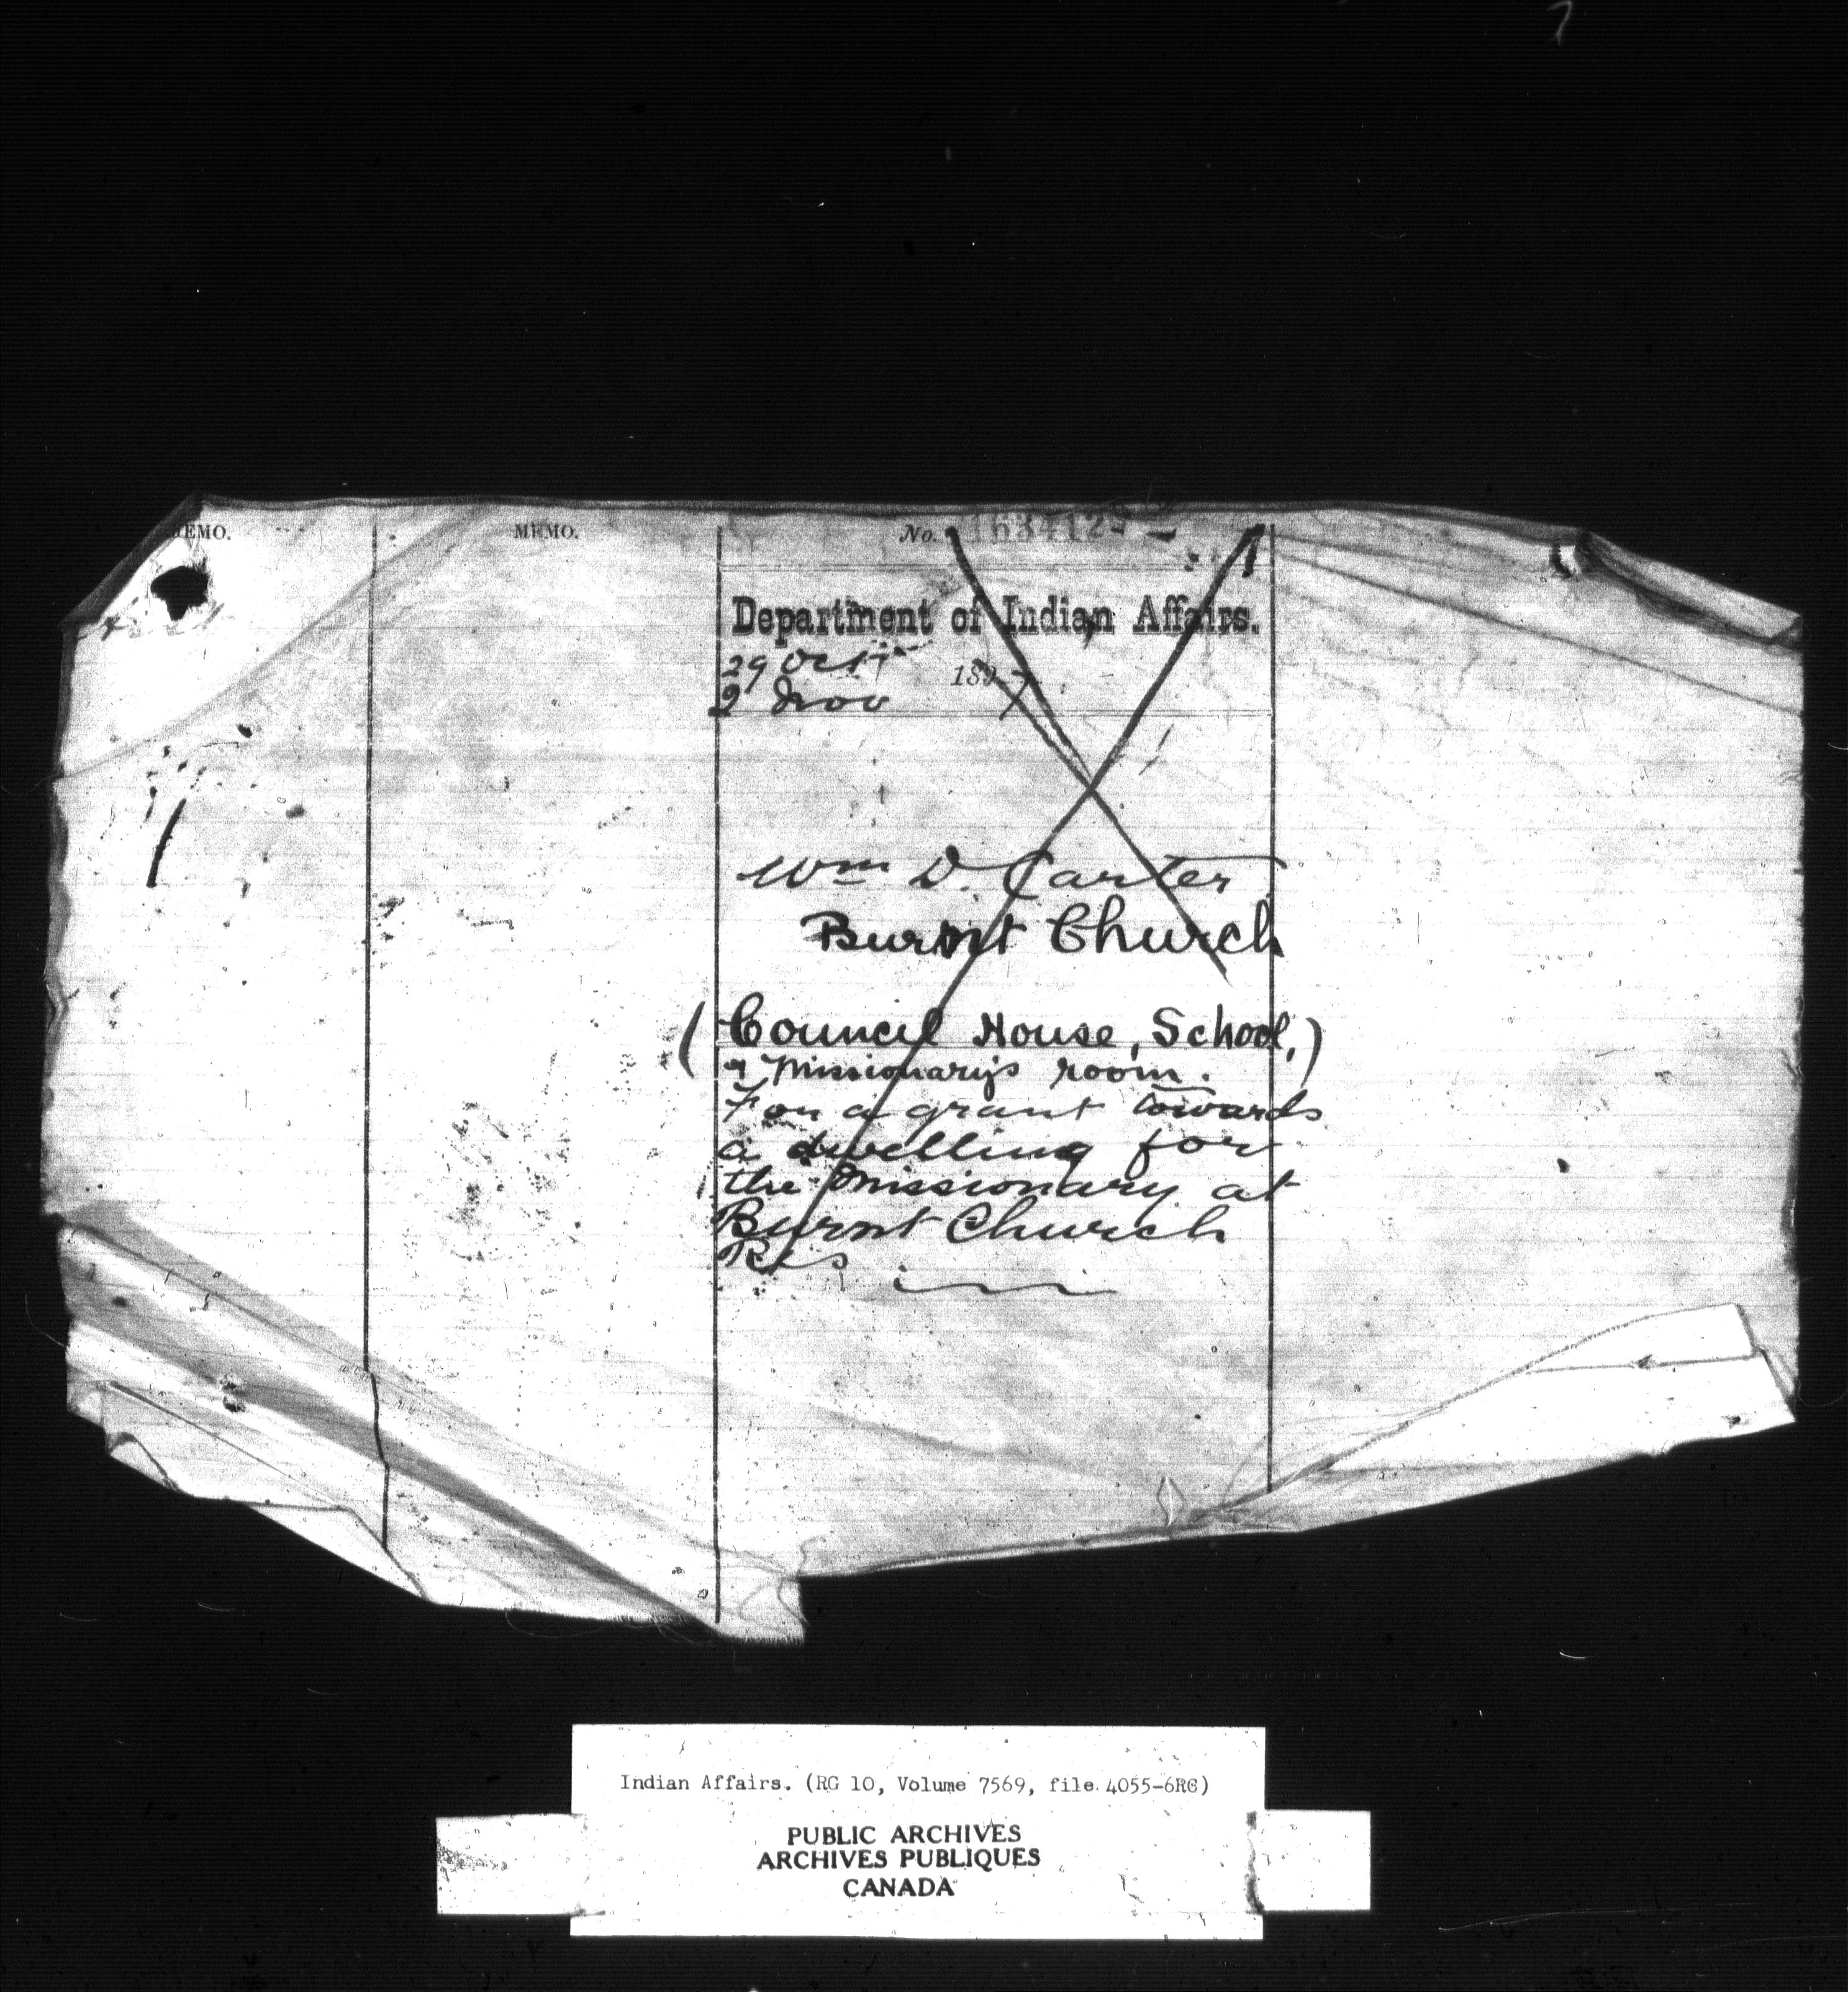 MEMO.
MEMO.
No. 163412
Department of Indian Affairs.
29 Oct
2 Nov 1897
Wm D. Carter
Burnt Church
(Council House, School,)
& Missionary's room.
For a grant towards
a dwelling for
the Missionary at
Burnt Church
Res
Indian Affairs. (RG 10, Volume 7569, file 4055-6RG)
PUBLIC ARCHIVES
ARCHIVES PUBLIQUES
CANADA